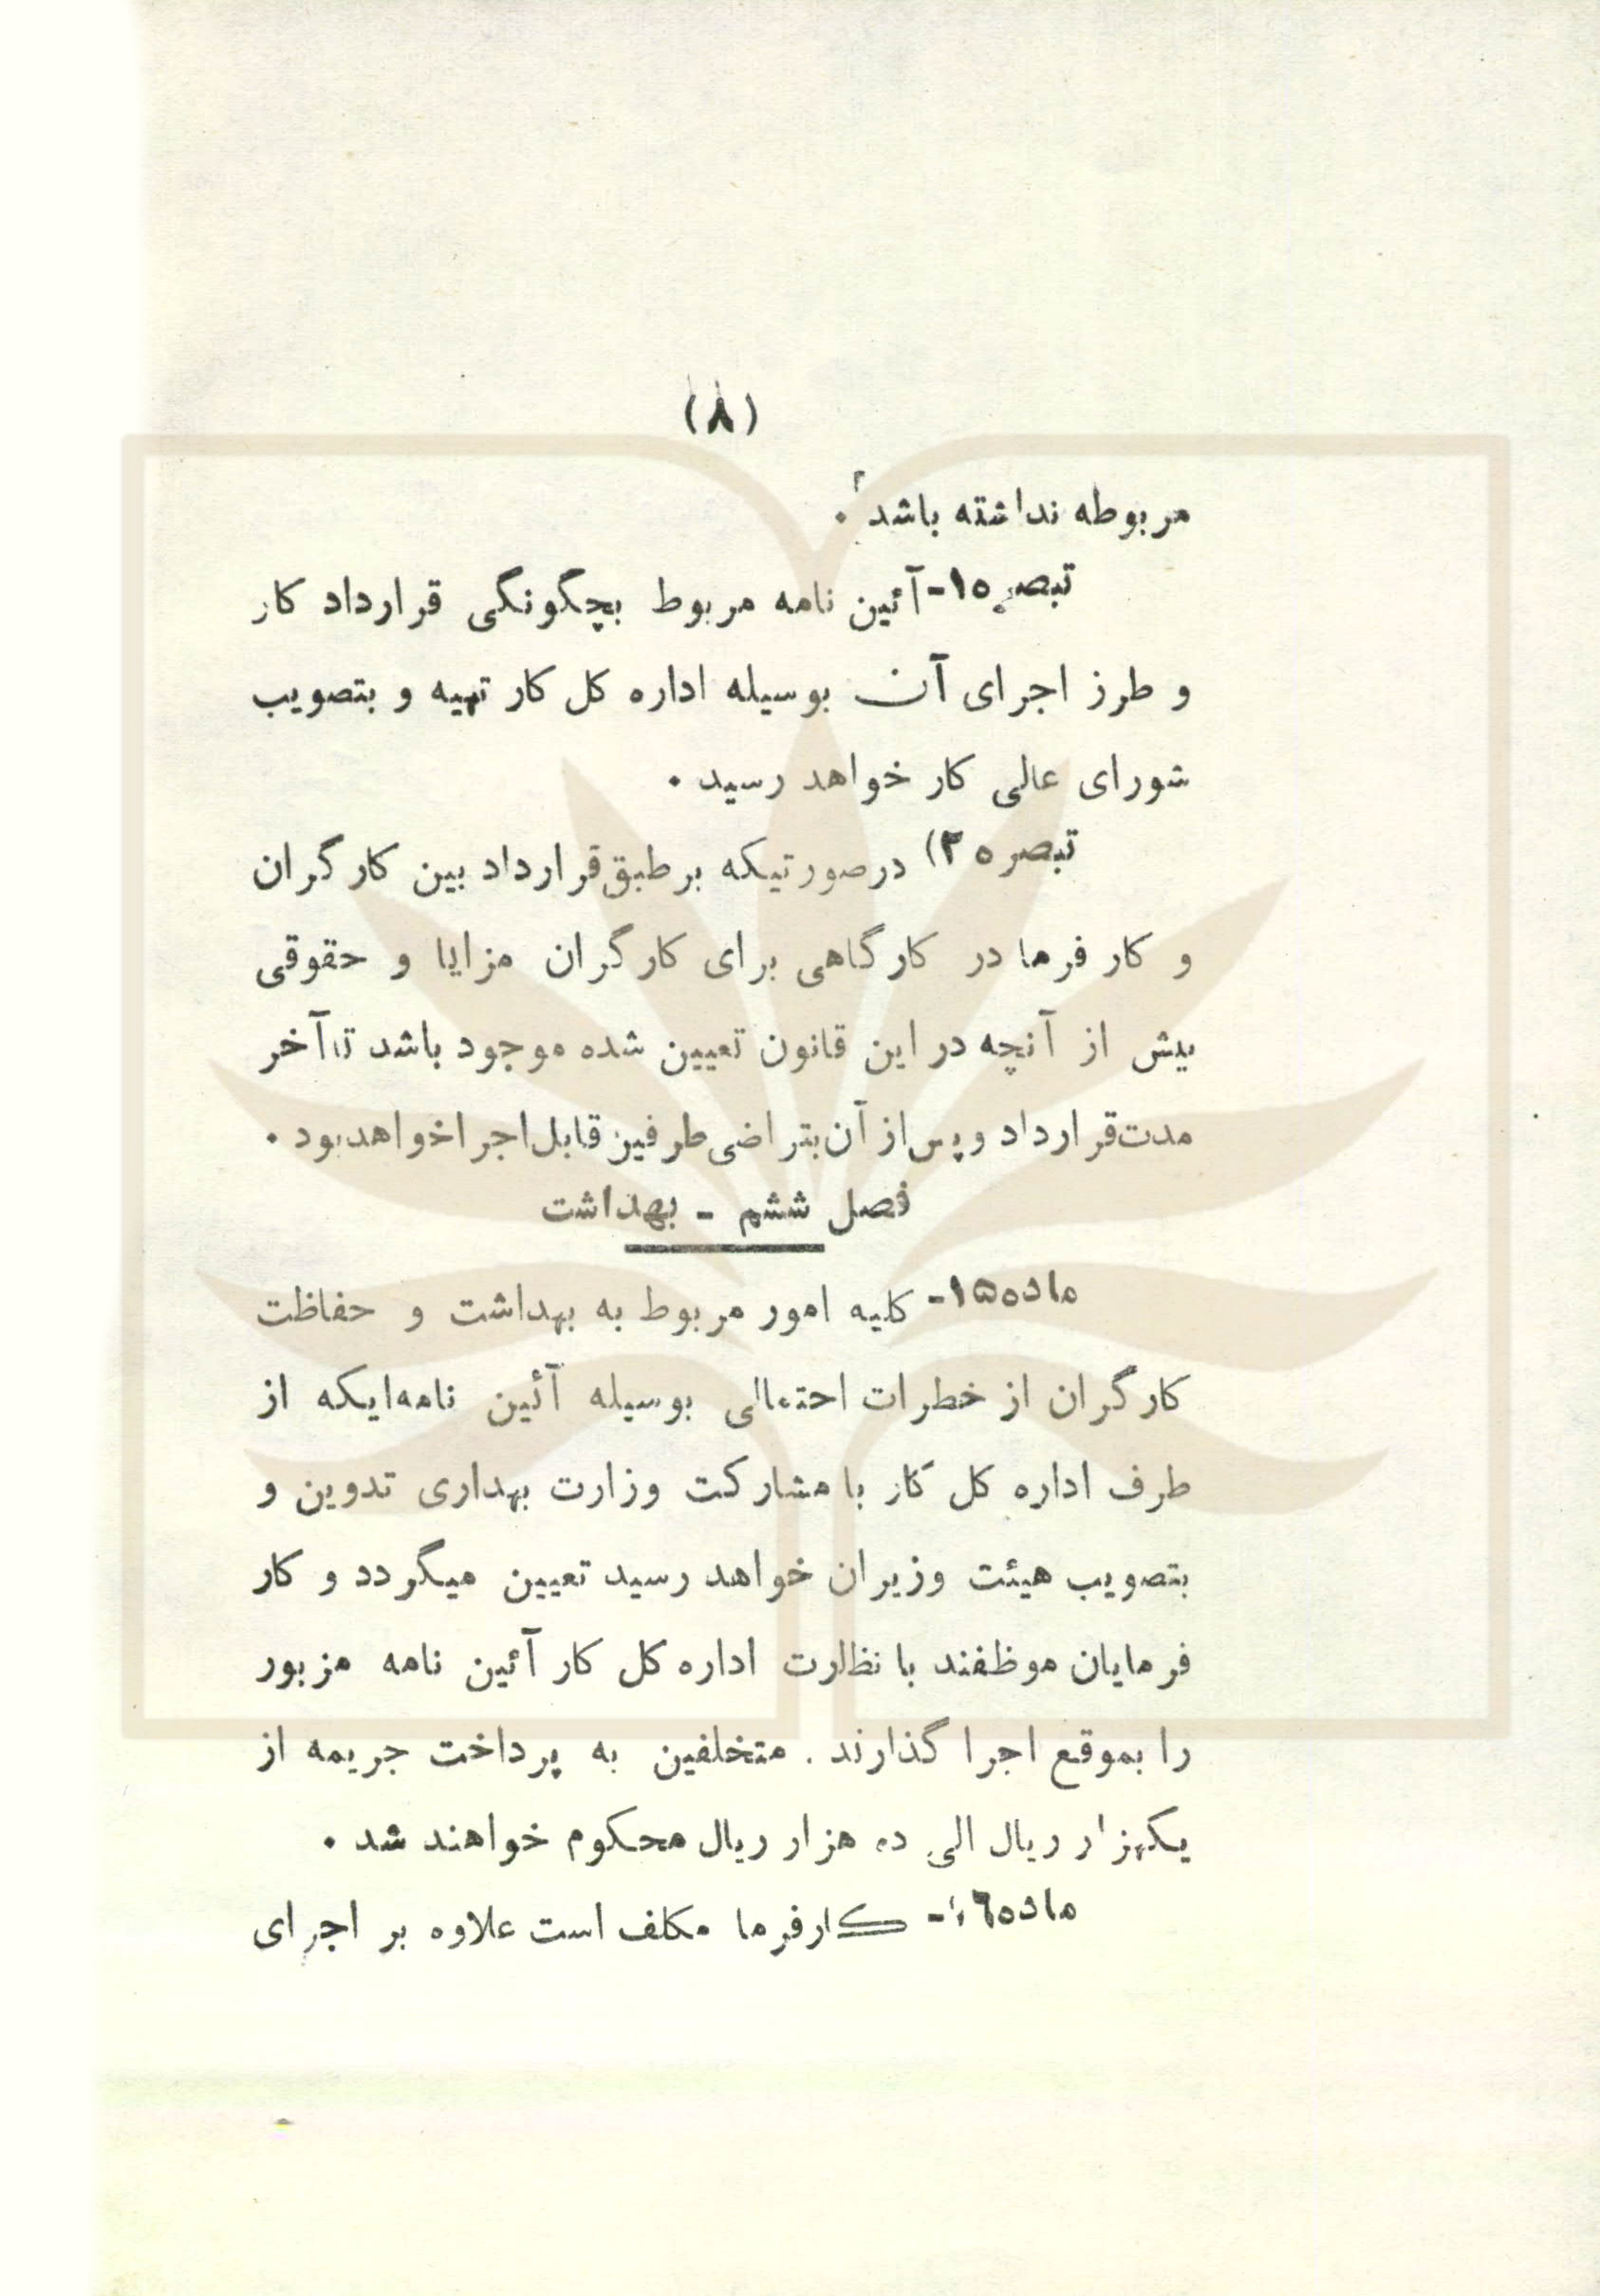 (۸)
مربوطه نداشته باشد .
تبصره۱- آئین نامه مربوط بچگونگی قرارداد کار
و طرز اجرای آن بوسیله اداره کل کار تهیه و بتصویب
شورای عالی کار خواهد رسید .
تبصره ۲) درصورتیکه برطبق قرارداد بین کارگران
و کار فرما در کارگاهی برای کارگران مزایا و حقوقی
بیش از آنچه در این قانون تعیین شده موجود باشد تا آخر
مدت قرارداد و پس از آن بتراضی طرفین قابل اجرا خواهد بود .
فصل ششم - بهداشت
ماده۱۵- کلیه امور مربوط به بهداشت و حفاظت
کارگران از خطرات احتمالی بوسیله آئین نامه‌ایکه از
طرف اداره کل کار با مشارکت وزارت بهداری تدوین و
بتصویب هیئت وزیران خواهد رسید تعیین میگردد و کار
فرمایان موظفند با نظارت اداره کل کار آئین نامه مزبور
را بموقع اجرا گذارند . متخلفین به پرداخت جریمه از
یکهزار ریال الی ده هزار ریال محکوم خواهند شد .
ماده۱۶- کارفرما مکلف است علاوه بر اجرای